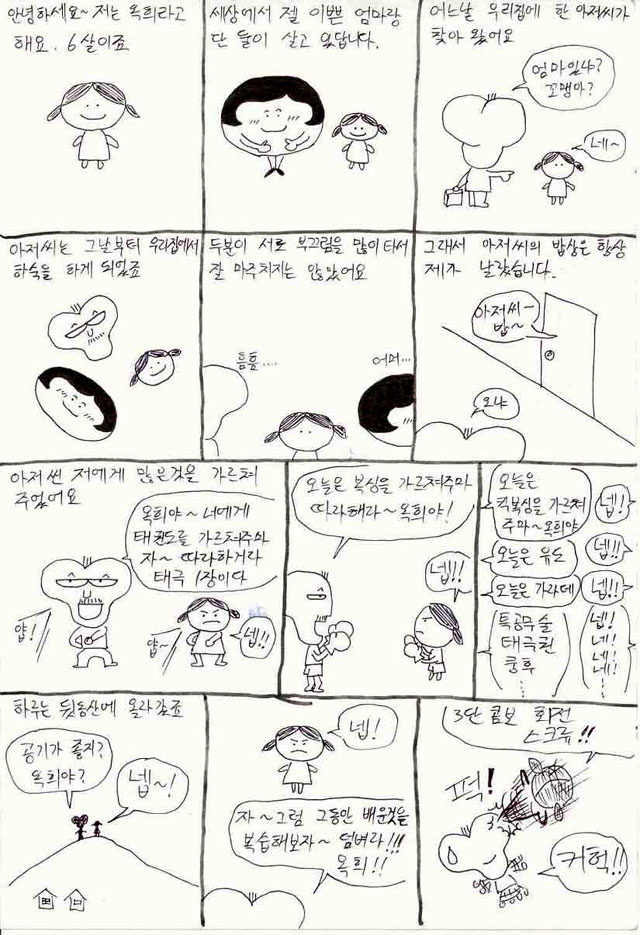 안녕하세요~ 저는 옥희라고
해요. 6살이죠
세상에서 젤 이쁜 엄마랑
단 둘이 살고 있답니다.
어느날 우리집에 한 아저씨가
찾아 왔어요
엄마있나?
꼬맹아?
네~
아저씨는 그날부터 우리집에서
하숙을 하게 되었죠
두분이 서로 부끄럼을 많이 타서
잘 마주치지는 않았어요
흠흠....
어머...
그래서 아저씨의 밥상은 항상
제가 날랐습니다.
아저씨—
밥~
오냐
아저씬 저에게 많은것을 가르쳐
주었어요
옥희야~ 너에게
태권도를 가르쳐주마
자~ 따라하거라
태극 1장이다
얍!
얍~
넵!!
오늘은 복싱을 가르쳐주마
따라해라~ 옥희야!
넵!!
오늘은
킥복싱을 가르쳐
주마~ 옥희야
넵!
오늘은 유도
넵!!
오늘은 가라데
넵!!
특공무술
태극권
쿵후
......
넵!
네!
네!
하루는 뒷동산에 올라갔죠
공기가 좋지?
옥희야?
넵~!
넵!
자~ 그럼 그동안 배운것을
복습해보자~ 덤벼라!!!
옥희!!
3단 콤보 회전
스크류!!
퍽!
커헉!!